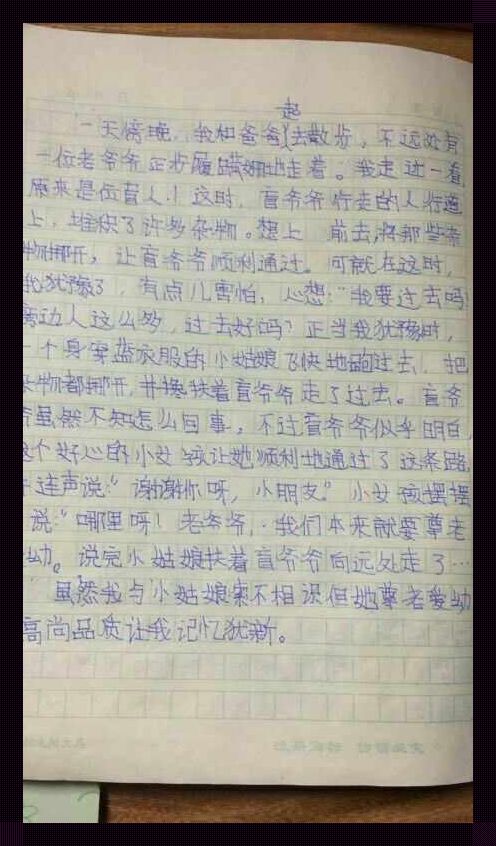 起
一天傍晚,我和爸爸去散步,不远处有
一位老爷爷正步履蹒跚地走着。我走进一看,
原来是位盲人!这时,盲爷爷行走的人行道
上,堆积了许多杂物。想上 前去,将那些杂
物挪开,让盲爷爷顺利通过。可就在这时,
我犹豫了,有点儿害怕,心想:“我要过去吗?
旁边人这么多,过去好吗?正当我犹豫时,
一个身穿蓝衣服的小姑娘飞快地跑过去,把
杂物都挪开,并搀扶着盲爷爷走了过去。盲爷
爷虽然不知怎么回事,不过盲爷爷似乎明白,
这个好心的小女孩让她顺利地通过了这条路,
连声说:“谢谢你呀,小朋友。”小女孩摆摆
说:“哪里呀!老爷爷,我们本来就要尊老
幼。说完小姑娘扶着盲爷爷向远处走了…
虽然我与小姑娘素不相识但她尊老爱幼
高尚品质让我记忆犹新。